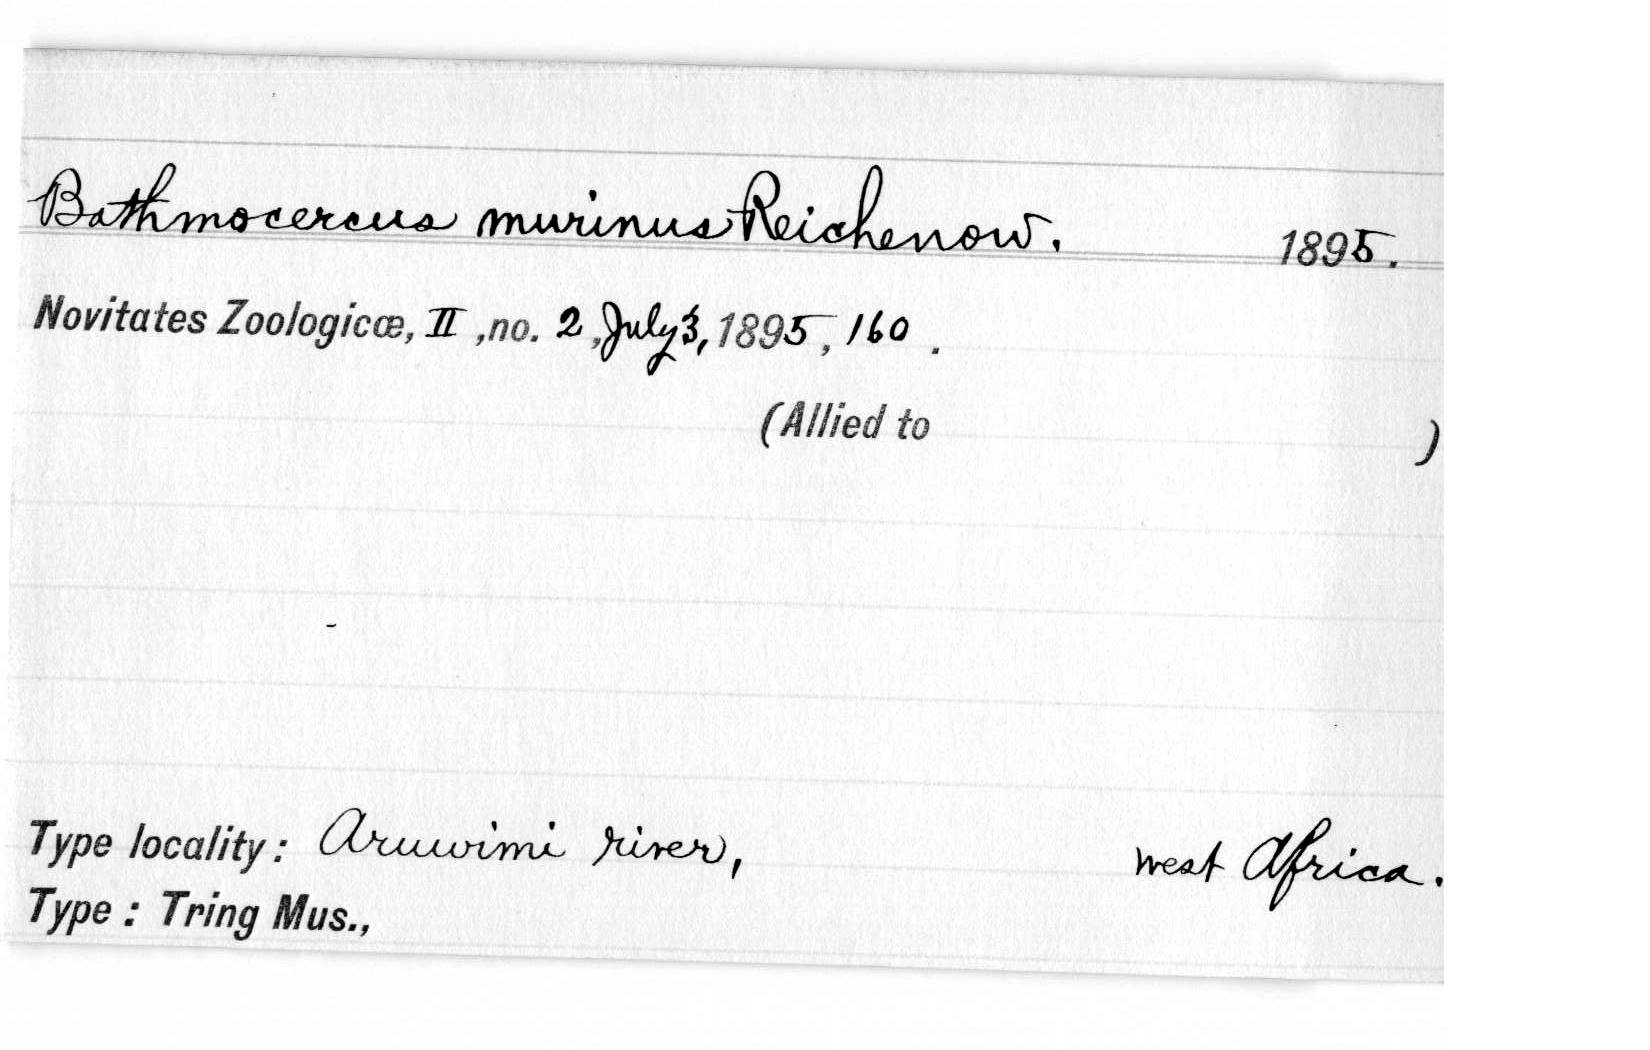 Bathmocercus murinus Reichenow. 1895.
Novitates Zoologicæ, II, no. 2, July 3, 1895, 160.
(Allied to )
Type locality: Aruwimi river, West Africa.
Type: Tring Mus.,